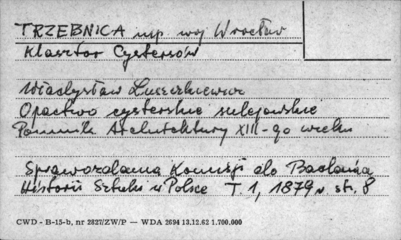 TRZEBNICA mp. woj Wrocław
Klasztor Cystersów
Władysław Łuszczkiewicz
Opactwo cysterskie sulejowskie
Pomnik Architektury XIII-go wieku
Sprawozdania Komisji do Badania
Historii Sztuki w Polsce T. 1, 1879 r. str. 8
CWD - B-15-b, nr 2827/ZW/P — WDA 2694 13.12.62 1.700.000